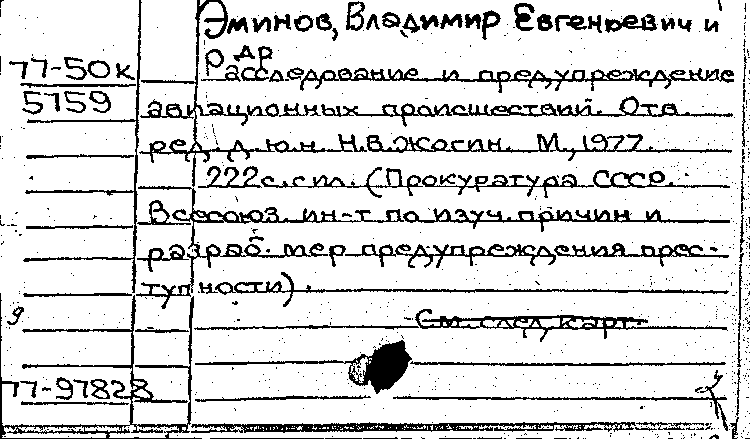 Эминов, Владимир Евгеньевич и
др
77-50к Расследование и предупреждение
5759 авиационных происшествий. Отв.
ред. д.ю.н. Н.В.Жогин. М., 1977.
222с.с ил. (Прокуратура СССР.
Всесоюз. ин-т по изуч.причин и
разраб. мер предупреждения прес-
тупности).
9 См. след. карт.
77-97828